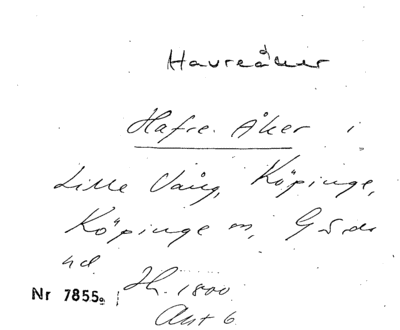 Havreåker
Hafre. Åker i
Lille Vång, Köpinge,
Köpinge sn, G s de
hd.
Nr 7855 Jh. 1800
Akt 6